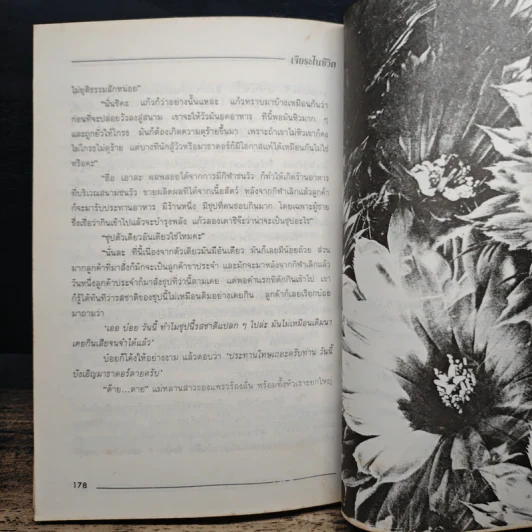 เจียระไนชีวิต
ไม่ยุติธรรมสักหน่อย"
"นั่นซิคะ แก้วก็ว่าอย่างนั้นแหละ แก้วทราบมาบ้างเหมือนกันว่า
ก่อนที่จะปล่อยวัวลงสู่สนาม เขาจะให้วัวมันอดอาหาร ทีนี้พอมันหิวมาก ๆ
และถูกยั่วให้โกรธ มันก็ต้องเกิดความดุร้ายขึ้นมา เพราะถ้าเขาไม่หิวเขาก็คง
ไม่โกรธไม่ดุร้าย แต่บางทีนักสู้วัวหรือมาธาดอร์ก็มีโอกาสแพ้ได้เหมือนกันไม่ใช่
หรือคะ"
"ฮือ เอาละ ผลพลอยได้จากการมีกีฬาชนวัว ก็ทำให้เกิดร้านอาหาร
ที่บริเวณสนามชนวัว ขายผลิตผลที่ได้จากเนื้อสัตว์ หลังจากกีฬาเลิกแล้วลูกค้า
ก็จะมารับประทานอาหาร มีร้านหนึ่ง มีซุปที่คนชอบกินมาก โดยเฉพาะผู้ชาย
ซึ่งเชื่อว่ากินเข้าไปแล้วจะบำรุงพลัง แก้วลองเดาซิจ๊ะว่าน่าจะเป็นซุปอะไร"
"ซุปตัวเดียวอันเดียวใช่ไหมคะ"
"นั่นละ ทีนี้เนื่องจากตัวเดียวมันมีอันเดียว มันก็เลยมีน้อยถ้วย ส่วน
มากลูกค้าที่มาสั่งก็มักจะเป็นลูกค้าขาประจำ และมักจะมาหลังจากกีฬาเลิกแล้ว
วันหนึ่งลูกค้าประจำก็มาสั่งซุปที่ว่านี้ตามเคย แต่พอคำแรกที่ตักกินเข้าไป เขา
ก็รู้ได้ทันทีว่ารสชาติของซุปนี้ไม่เหมือนเดิมอย่างเคยกิน ลูกค้าก็เลยเรียกบ๋อย
มาถามว่า
'เออ บ๋อย วันนี้ ทำไมซุปนี้รสชาติแปลก ๆ ไปล่ะ มันไม่เหมือนเดิมนา
เคยกินเสียจนจำได้แล้ว'
บ๋อยก็โค้งให้อย่างงาม แล้วตอบว่า 'ประทานโทษเถอะครับท่าน วันนี้
บังเอิญมาธาดอร์ตายครับ'
"ต๊าย...ตาย" แม่หลานสาวของแพรวร้องลั่น พร้อมทั้งหัวเราะยกใหญ่
178